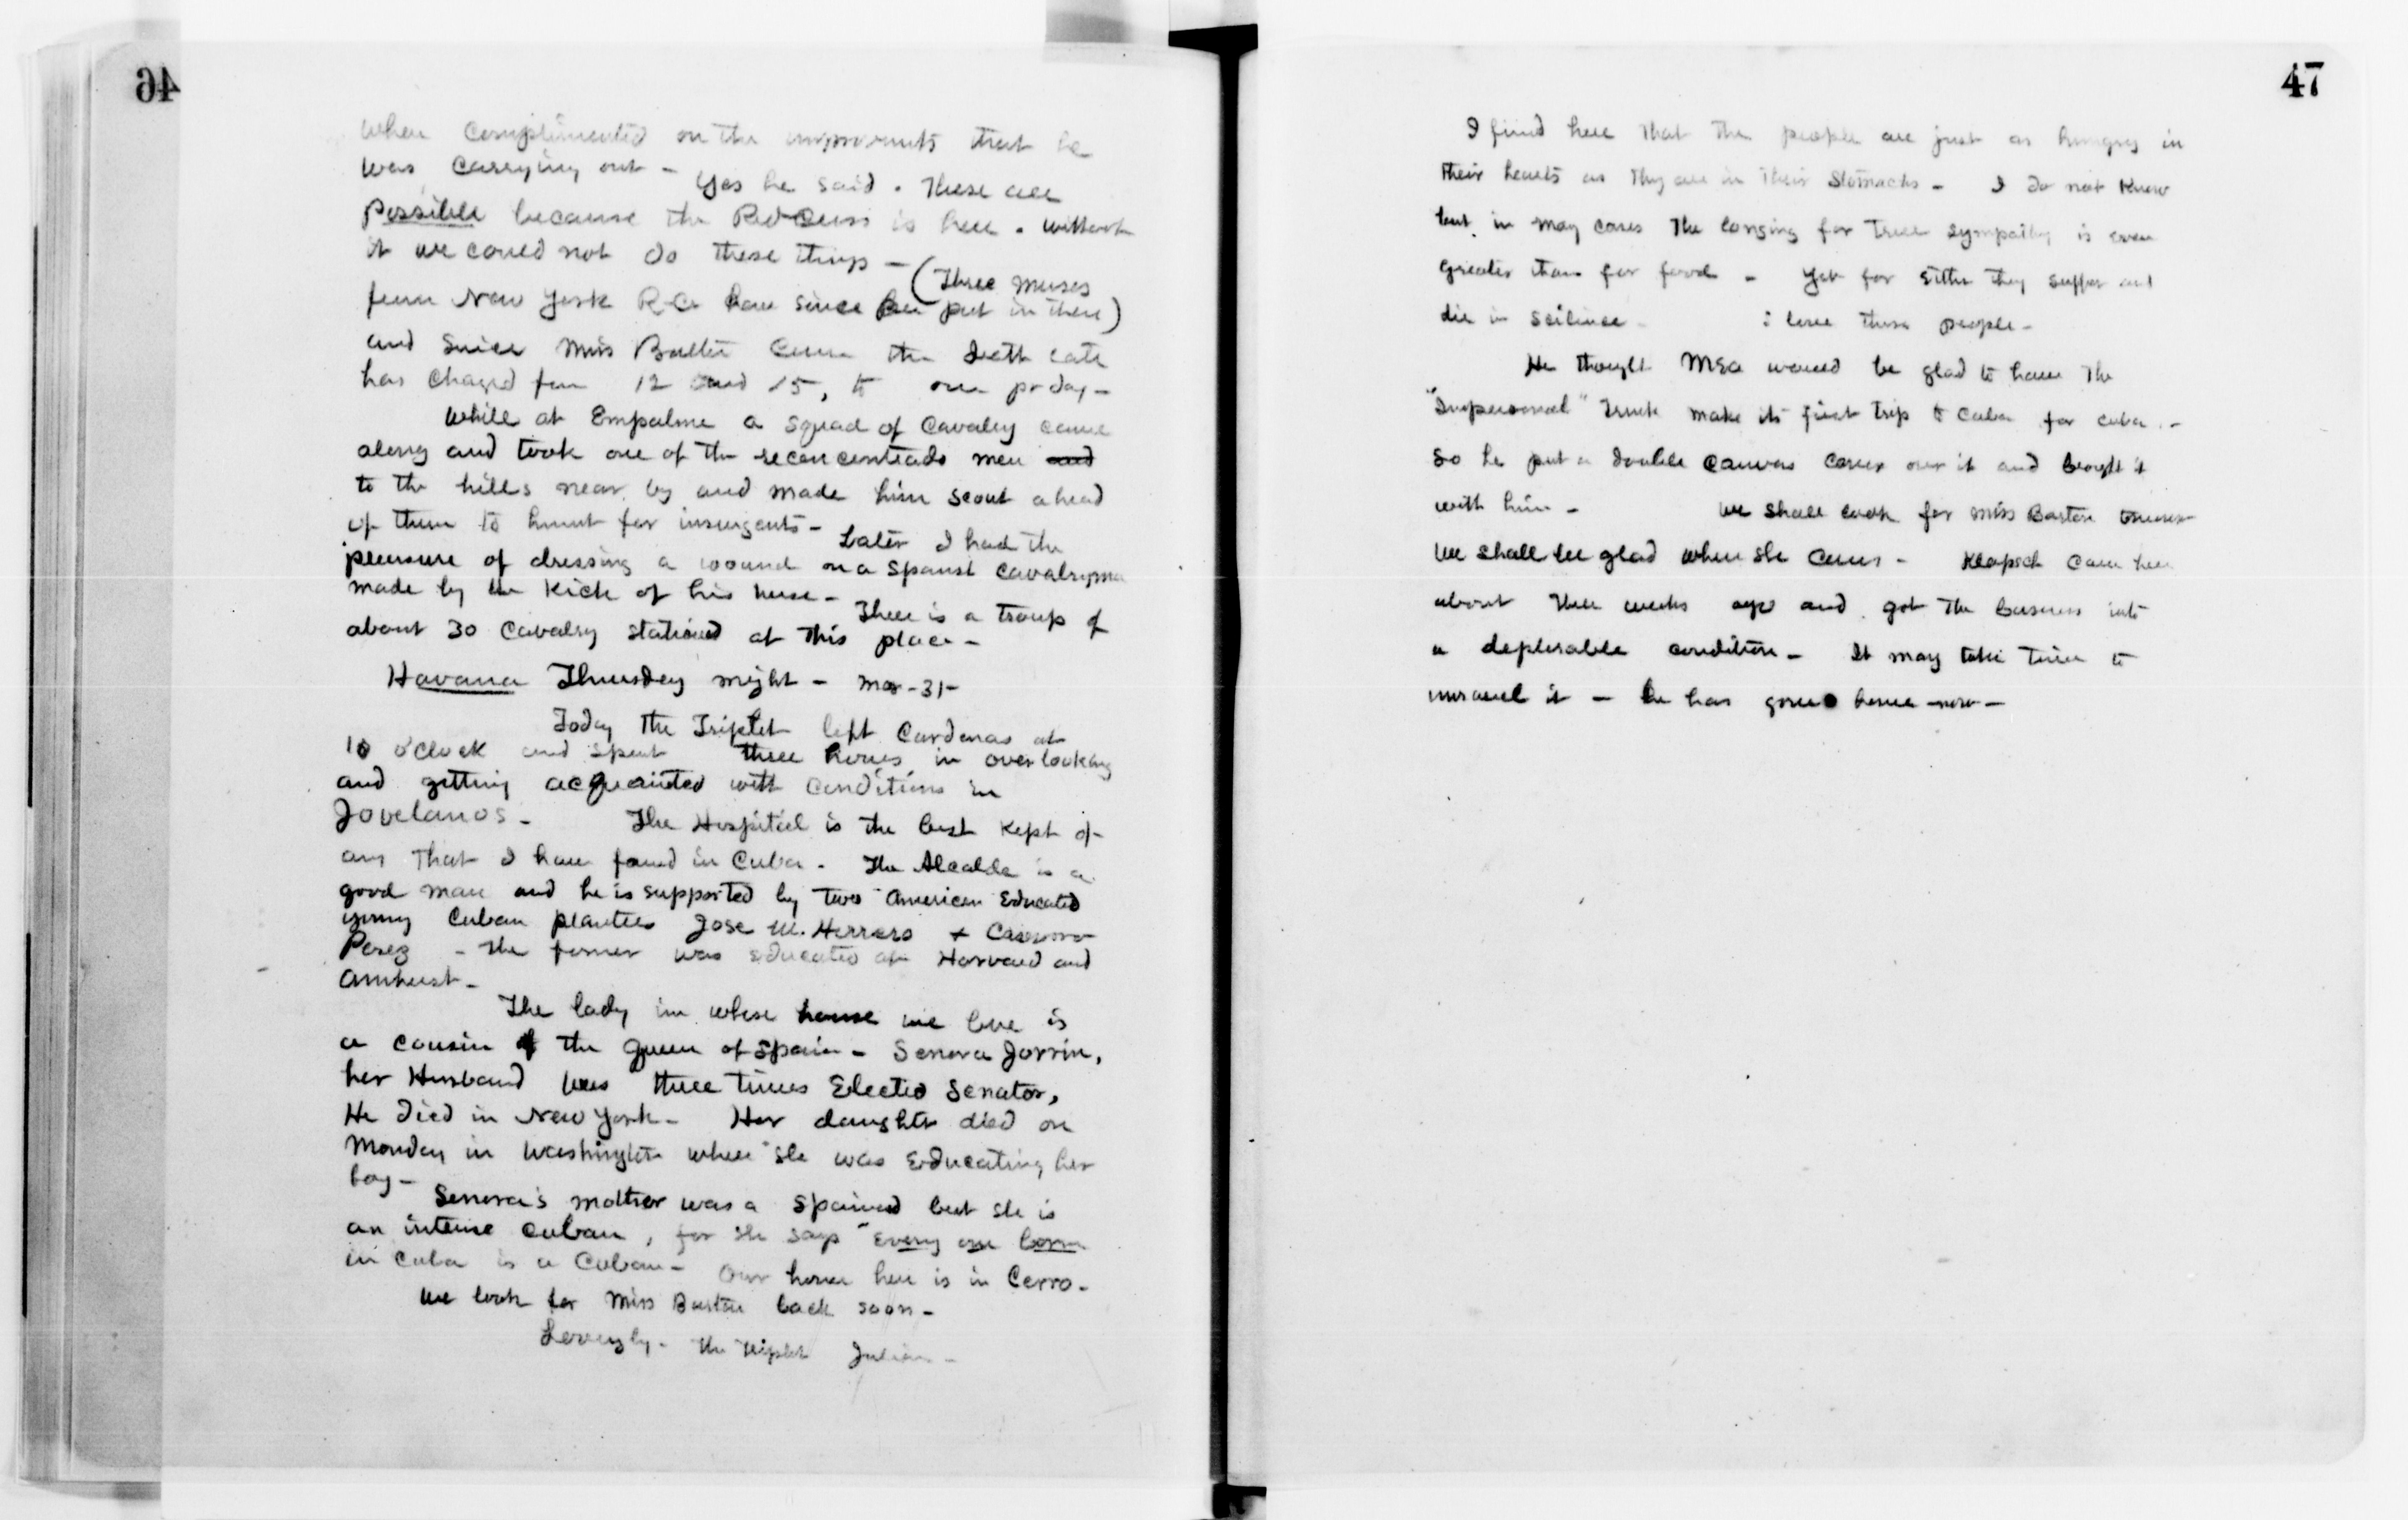 46
when complimented on the improvments that he
was carrying out - Yes he said. These are
possible because the Red Cross is here. without
it we could not do these things - (Three nurses
from New York R-C- have since been put in there)
and since Miss Barton came the death rate
has chaged from 12 and 15, to one pr day -
While at Empalme a squad of Cavalry came
along and took one of the reconcentrado men and
to the hills near by and made him scout ahead
of them to hunt for insurgents - Later I had the
pleasure of dressing a wound on a Spanish cavalryman
made by the Kick of his horse - There is a troup of
about 30 Cavalry stationed at this place -
Havana Thursday night - Mar - 31 -
Today the Triplet left Cardenas at
10 o'clock and spent three hours in overlooking
and getting acquainted with conditions in
Jovelanos - The Hospital is the best kept of
any that I have found in Cuba. The Alcalde is a
good man and he is supported by two American Educated
young Cuban planters Jose M. Herrero +
Perez - the former was educated at Harvard and
Amherst -
The lady in whose house we live is
a cousin of the Queen of Spain - Senora Jorrin,
her Husband was three times Elected Senator,
He died in New York - Her daughter died on
Monday in Washington where she was Educating her
boy -
Senora's mother was a Spaniard but she is
an intense Cuban, for she says "every one born
in Cuba is a Cuban - Our home here is in Cerro -
We look for Miss Barton back soon -
Lovingly - the Triplet Julian -
47
I find here that the people are just as hungry in
their hearts as they are in their stomachs - I do not know
but in many cases the longing for true sympathy is even
greater than for food - Yet for either they suffer and
die in scilence - I love these people -
He thought MEG would be glad to have the
"Impersonal" Trunk make its first trip to Cuba for Cuba -
So he put a double canvas cover over it and brought it
with him - We shall look for Miss Barton
We shall be glad when she comes - Klopsch came here
about three weeks ago and got the business into
a deplorable condition - It may take time to
unravel it - he has gone home now -